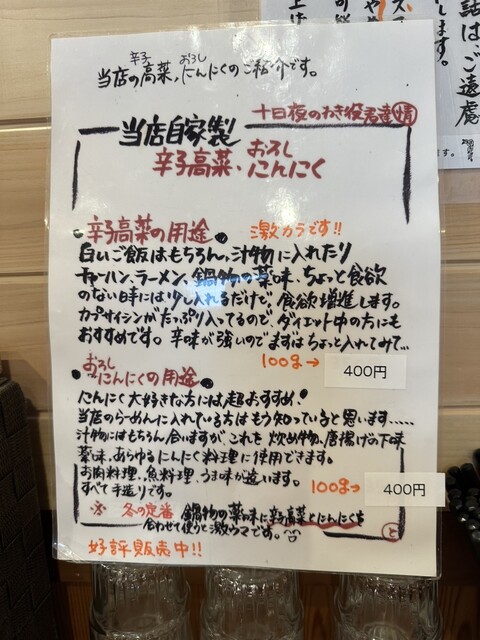 辛子 おろし
当店の高菜、にんにくのご紹介です。
十日夜のわき役君達 情
当店自家製
辛子高菜・おろしにんにく
辛子高菜の用途
激カラです!!
白いご飯はもちろん、汁物に入れたり
チャーハン、ラーメン、鍋物の薬味、ちょっと食欲
のない日時には少し入れるだけで、食欲増進します。
カプサイシンがたっぷり入ってるので、ダイエット中の方にも
おすすめです。辛味が強いのでまずはちょっと入れてみて…
100g→
400円
おろしにんにくの用途
にんにく大好きな方には超おすすめ!
当店のらーめんに入れている方はもう知っていると思います.....
汁物にはもちろん合いますが、これを炒め物、唐揚げの下味
薬味、あらゆるにんにく料理に使用できます。
お肉料理、魚料理、うま味が違います。
すべて手造りです。
100g→
400円
※ 冬の定番 鍋物の薬味に辛子高菜とにんにくを
合わせて使うと激ウマです。
と
好評販売中!!
話はご遠慮
します。